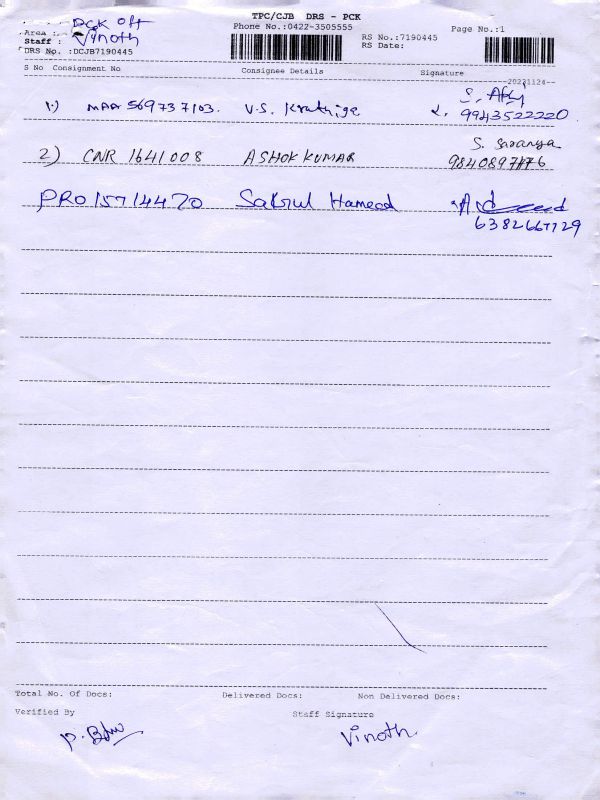 TPC/CJB DRS - PCK
PCK Off
Area :
Phone No.:0422-3505555
RS No.:7190445
Page No.:1
Staff : Vinoth
RS Date:
DRS No. :DCJB7190445
S No Consignment No Consignee Details Signature
20231124
1.) MAA 569737103. V.S. Krathiga
9943522220
2) CNR 1641008 ASHOK KUMAR S. Saranya
PRO15714420 Sakrul Hameed
6382667729
Total No. Of Docs: Delivered Docs: Non Delivered Docs:
Verified By Staff Signature
Vinoth.